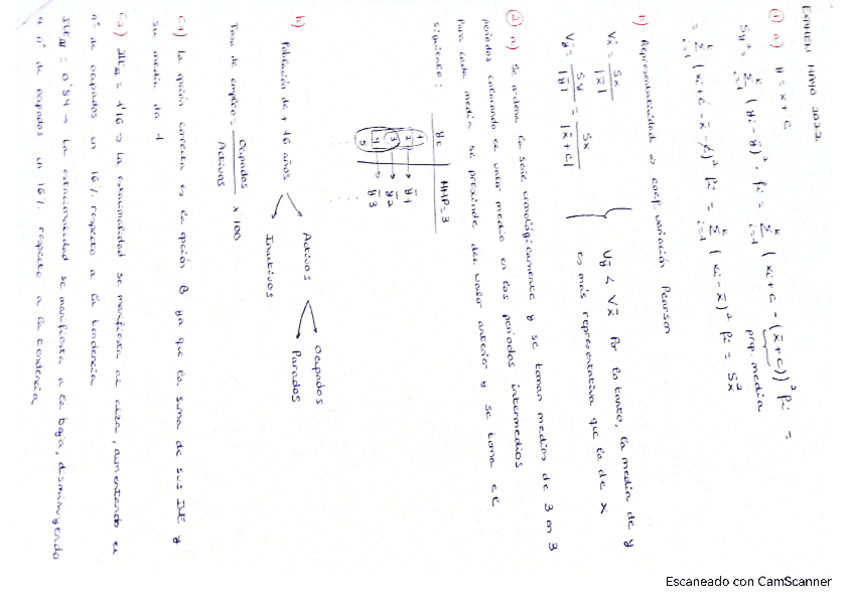 EXAMEN MAYO 2022
① a) y = x + c
Sy² = Σ (yi - ȳ)² · fi = Σ (xi + c - (x̄ + c))² fi =
prop. media
= Σ (xi + c - x̄ - c)² fi = Σ (xi - x̄)² fi = Sx²
b) Representatividad ⇒ coef. variación Pearson
Vx̄ = Sx / |x̄|
Vȳ = Sy / |ȳ| = Sx / |x̄ + c|
Vȳ < Vx̄ Por lo tanto, la media de y
es más representativa que la de x
② a) Se ordena la serie cronológicamente y se toman medias de 3 en 3
periodos colocando el valor medio en los periodos intermedios
Para cada media se prescinde del valor anterior y se toma el
siguiente:
yt MMP=3
1
2 → ȳ1
3 → ȳ2
4 → ȳ3
5
b) Población de + 16 años
Activos
Inactivos
Ocupados
Parados
Tasa de empleo = Ocupados / Activos x 100
C.1) La opción correcta es la opción B ya que la suma de sus IVE y
su media da 1
C.2) = 1'16 ⇒ La estacionalidad se manifiesta al alza, aumentando el
nº de ocupados un 16% respecto a la tendencia
= 0'84 → La estacionalidad se manifiesta a la baja, disminuyendo
el nº de ocupados un 16% respecto a la tendencia
Escaneado con CamScanner